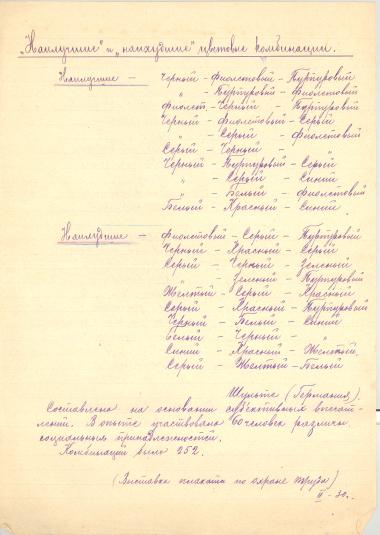 „Наилучшие" и „наихудшие" цветовые комбинации.
Наилучшие — Черный - Фиолетовый - Пурпуровый
" - Пурпуровый - Фиолетовый
Фиолет. - Черный - Пурпуровый
Черный - Фиолетовый - Серый
" - Серый - Фиолетовый
Серый - Черный - "
Черный - Пурпуровый - Серый
" - Серый - Синий
" - Белый - Фиолетовый
Белый - Красный - Синий
Наихудшие — Фиолетовый - Серый - Пурпуровый
Черный - Красный - Серый
Серый - Черный - Зеленый
" - Зеленый - Пурпуровый
Желтый - Серый - Красный
Серый - Красный - Пурпуровый
Черный - Белый - Синий
Белый - Черный - "
Синий - Красный - Желтый.
Серый - Желтый - Белый
Шульте (Германия).
Составлено на основании субъективных впечат-
лений. В опыте участвовало 60 человек различн.
социальных принадлежностей.
Комбинаций было 252.
(Выставка плаката по охране труда)
II - 30 г.